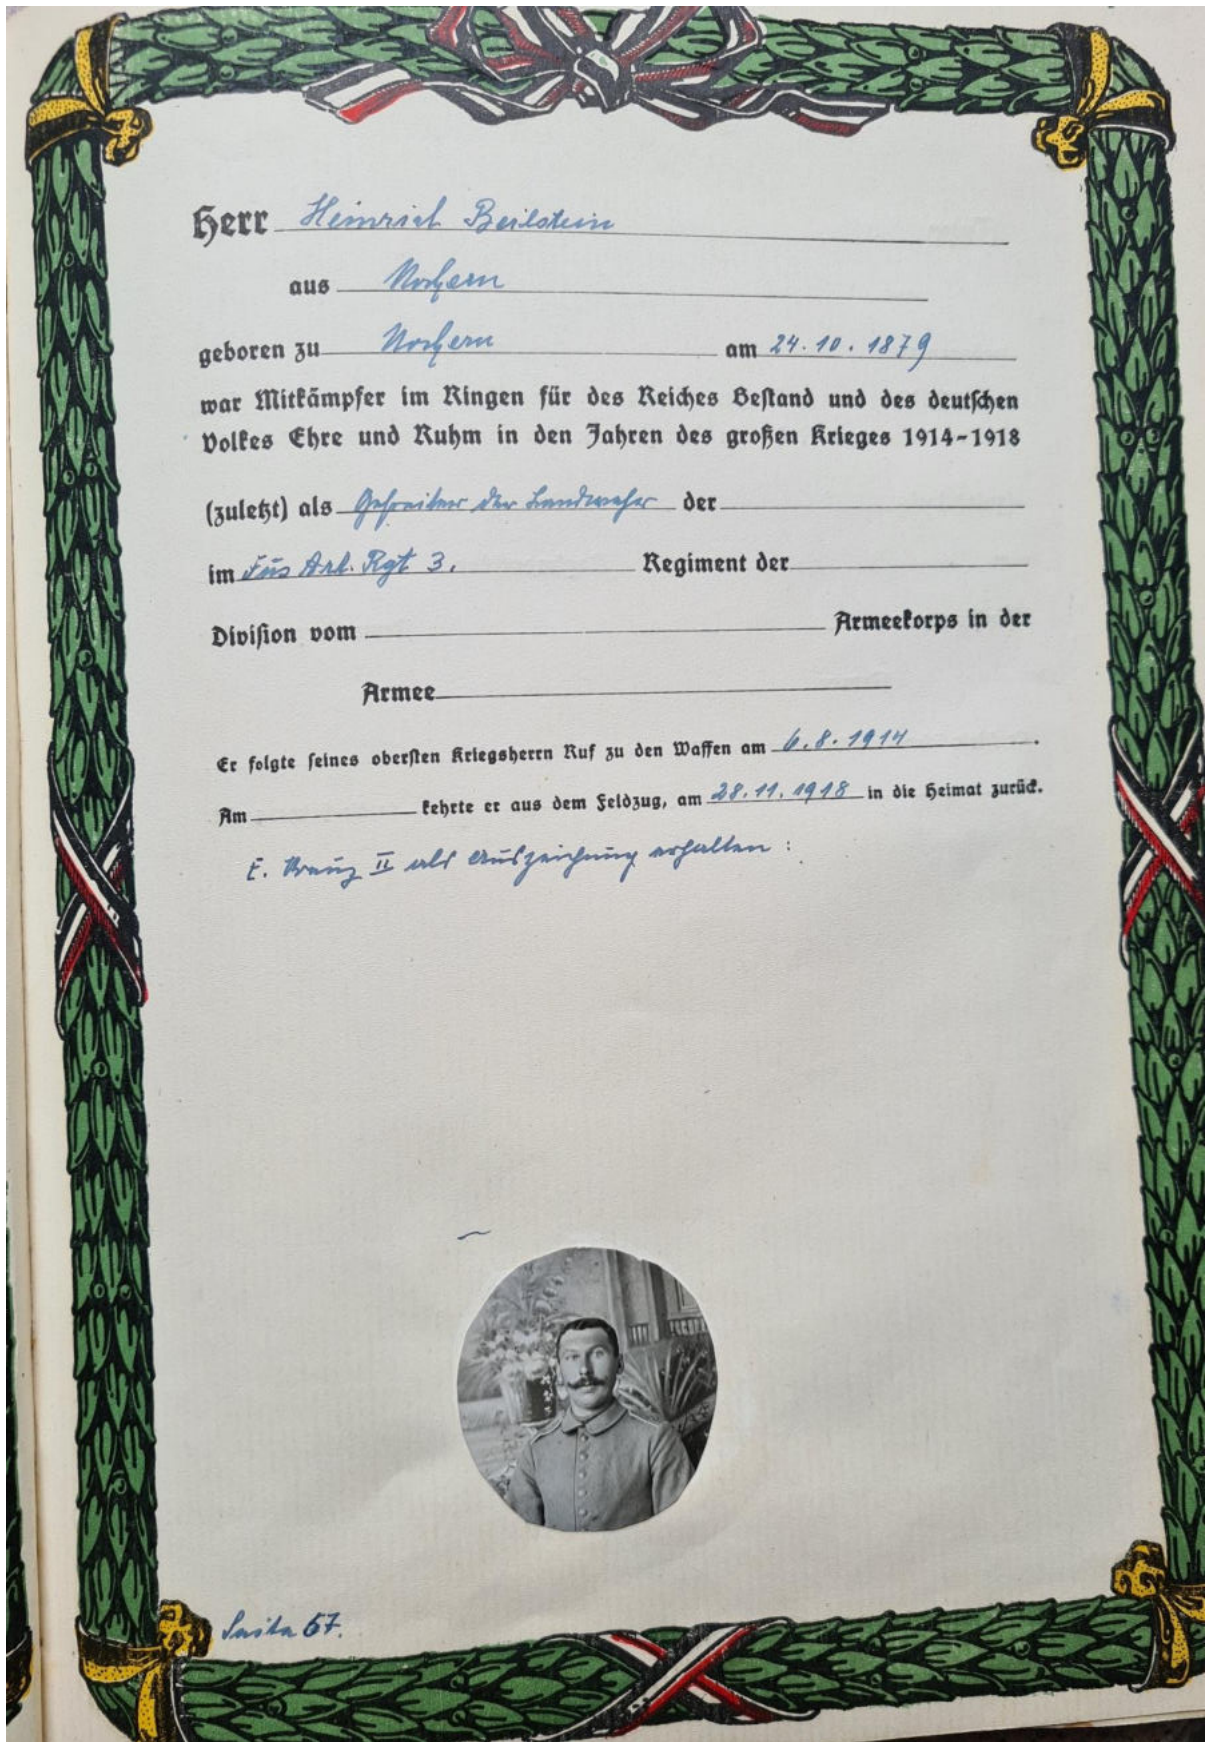 Herr Heinrich Beilstein
aus Nochern
geboren zu Nochern am 24.10.1879
war Mitkämpfer im Ringen für des Reiches Bestand und des deutschen
Volkes Ehre und Ruhm in den Jahren des großen Krieges 1914-1918
(zuletzt) als Gefreiter der Landwehr der
im Fus Art. Rgt 3. Regiment der
Division vom Armeekorps in der
Armee
Er folgte seines obersten Kriegsherrn Ruf zu den Waffen am 6.8.1914.
Am kehrte er aus dem Feldzug, am 28.11.1918 in die Heimat zurück.
E. Kreuz II als Auszeichnung erhalten:
Seite 67.